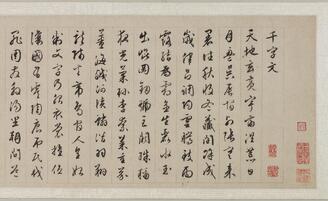 千字文
天地玄黃宇宙洪荒日
月盈昃辰宿列張寒來
暑往秋收冬藏閏餘成
歲律呂調陽雲騰致雨
露結為霜金生麗水玉
出崑岡劍號巨闕珠稱
夜光菓珍李柰菜重芥
薑海鹹河淡鱗潛羽翔
龍師火帝鳥官人皇始
制文字乃服衣裳推位
讓國有虞陶唐弔民伐
罪周發殷湯坐朝問道